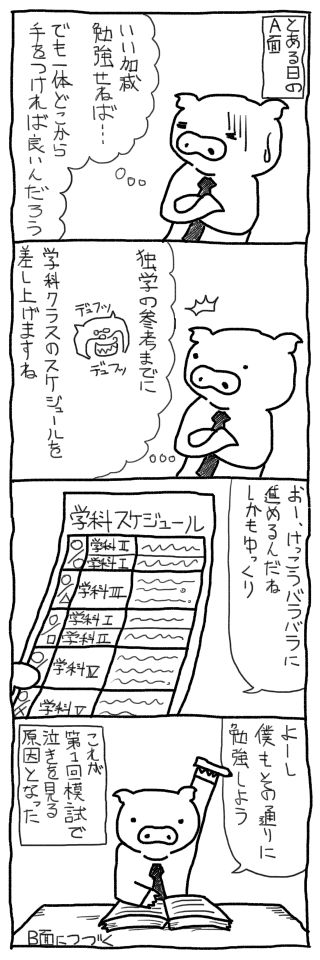 とある日の
A面
いい加減
勉強せねば…
でも一体どこから
手をつければ良いんだろう
独学の参考までに
デュフッ
デュフッ
学科クラスのスケジュールを
差し上げますね
おー、けっこうバラバラに
進めるんだね
しかもゆっくり
学科スケジュール
○/○ 学科Ⅱ
学科Ⅰ
○/△ 学科Ⅲ
○/□ 学科Ⅰ
学科Ⅱ
○/○ 学科Ⅳ
○/× 学科Ⅴ
よーし
僕もその通りに
勉強しよう
これが
第1回模試で
泣きを見る
原因となった
B面につづく